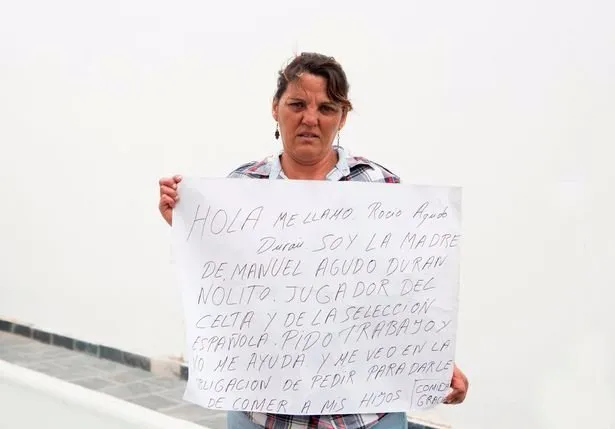 HOLA ME LLAMO. Rocio Agudo
Durán SOY LA MADRE
DE, MANUEL AGUDO DURAN
NOLITO. JUGADOR DEL
CELTA Y DE LA SELECCION
ESPAÑOLA. PIDO TRABAJO Y
NO ME AYUDA Y ME VEO EN LA
OBLIGACION DE PEDIR PARA DARLE
DE COMER A MIS HIJOS COMIDA
GRACIAS